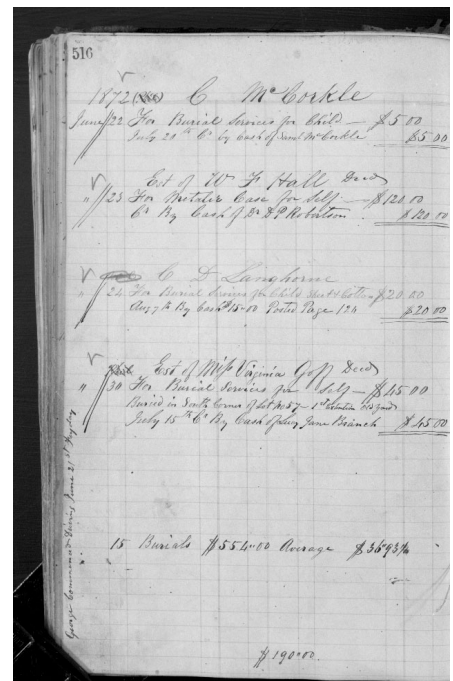 516
1872 C McCorkle
June 22 For Burial Services for Child — $5 00
July 20th Cr by Cash of Saml McCorkle $5 00
Est of W F Hall Decd
" 23 For Metalic Case for Self — $120.00
Cr By Cash of Dr D P Robertson $120 00
C D Langhorne
" 24 For Burial Services for Child Cotton $20.00
Augth By Cash 15-00 Posted Page 124 $20 00
Est of Miss Virginia Goff Decd
" 30 For Burial Services for Self — $45 00
Buried in South Corner of Lot No 57 — 1st old yard
July 15th Cr By Cash of Jane Branch $45 00
15 Burials $554-00 Average $36"93
$190"00.
George Commenced Driving June 21st